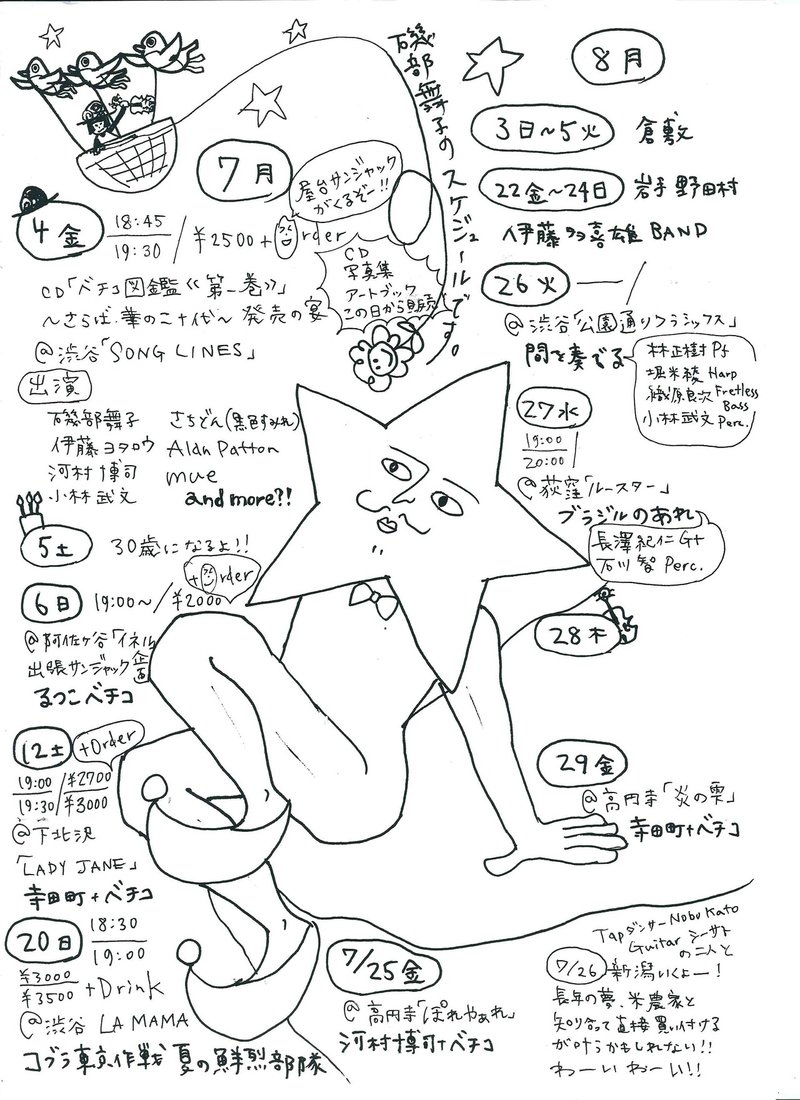 磯部舞子のスケジュールです。
7月
屋台サンジャック
がくるぞー!!
4金
18:45
19:30
/¥2500+order
CD
写真集
アートブック
この日から販売
CD「ベチコ図鑑《第一巻》」
～さらば、華の二十代～ 発売の宴
@渋谷「SONG LINES」
出演
磯部舞子 さちどん(黒色すみれ)
伊藤ヨタロウ Alan Patton
河村博司 mue
小林武文 and more?!
5土 30歳になるよ!!
6日 19:00～/¥2000
+order
@阿佐ヶ谷「イネル
出張サンジャック企画
るつこベチコ
12土 +order
19:00/¥2700
19:30/¥3000
@下北沢
「LADY JANE」
寺田町+ベチコ
20日 18:30
19:00
¥3000
¥3500 +Drink
@渋谷 LA MAMA
コブラ東京作戦 夏の鮮烈部隊
7/25金
@高円寺「ぽれやぁれ」
河村博司+ベチコ
TapダンサーNobu Kato
Guitar シーサト
の二人と
7/26 新潟いくよー!
長年の夢、米農家と
知り合って直接買い付ける
が叶うかもしれない!!
わーいわーい!!
8月
3日～5火 倉敷
22金～24日 岩手 野田村
伊藤多喜雄 BAND
26火 ―/
@渋谷「公園通りクラシックス」
間を奏でる
林正樹 Pf
堀米綾 Harp
織原良次 Fretless
Bass
小林武文 Perc.
27水
19:00
20:00/
@荻窪「ルースター」
ブラジルのあれ
長澤紀仁 Gt
石川智 Perc.
28木
29金
@高円寺「炎の雫」
寺田町+ベチコ